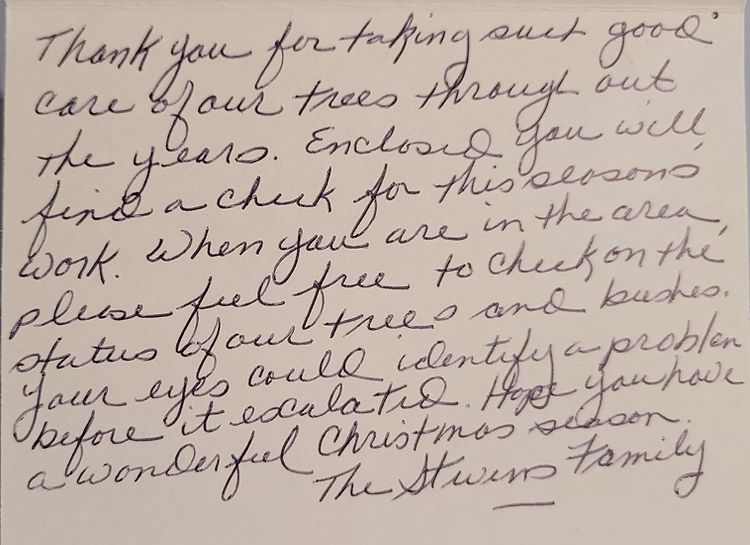 Thank you for taking such good
care of our trees through out
the years. Enclosed you will
find a check for this seasons
work. When you are in the area,
please feel free to check on the
status of our trees and bushes.
Your eyes could identify a problem
before it escalated. Hope you have
a wonderful Christmas season.
The Family